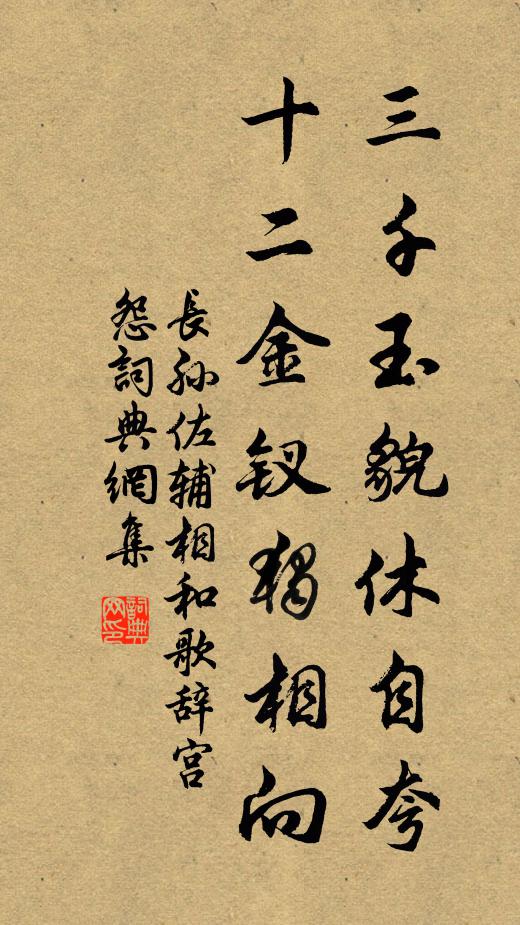 三千玉貌休自夸
十二金钗独相向
長孙佐辅相和歌辞宫
怨詞典網集
詞典
网印